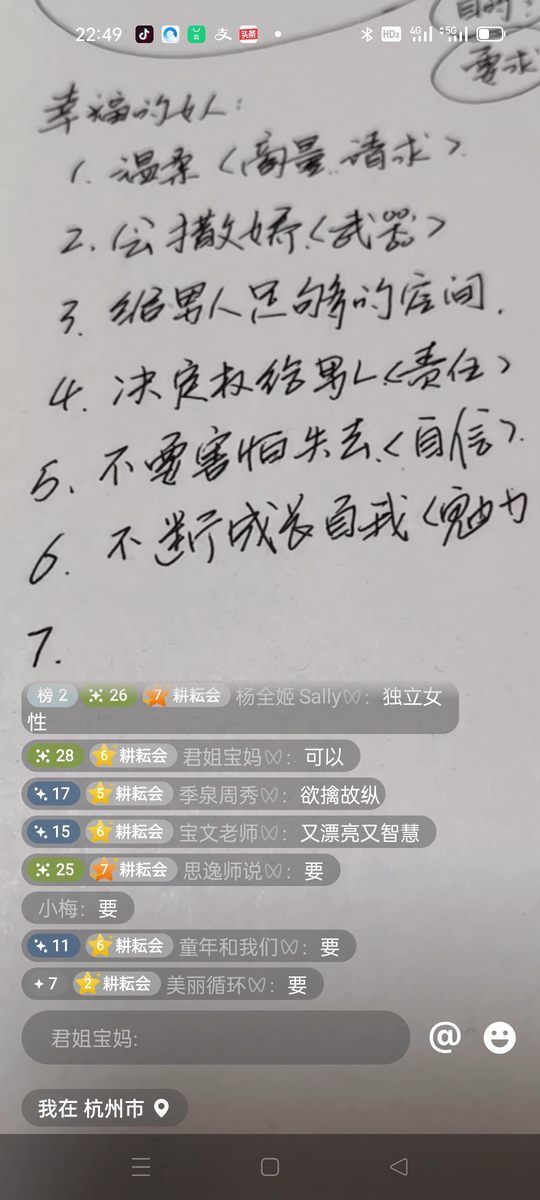 22:49
支
头条
HD2
4G
5G
目的:
要求
幸福的女人:
1. 温柔<商量、请求>.
2. 会撒娇.<武器>
3. 给男人足够的空间.
4. 决定权给男人.<责任>
5. 不要害怕失去.<自信>.
6. 不断成长自我<魅力
7.
榜 2 26 7 耕耘会 杨全姬 Sally: 独立女
性
28 6 耕耘会 君姐宝妈: 可以
17 5 耕耘会 季泉周秀: 欲擒故纵
15 6 耕耘会 宝文老师: 又漂亮又智慧
25 7 耕耘会 思逸师说: 要
小梅: 要
11 6 耕耘会 童年和我们: 要
7 2 耕耘会 美丽循环: 要
君姐宝妈:
@
我在 杭州市